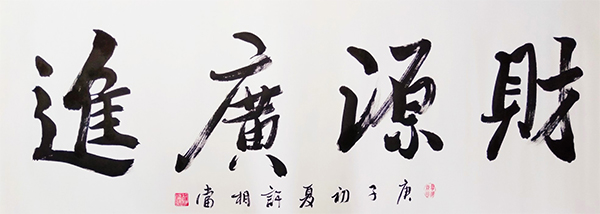 財源廣進
庚子初夏許相當